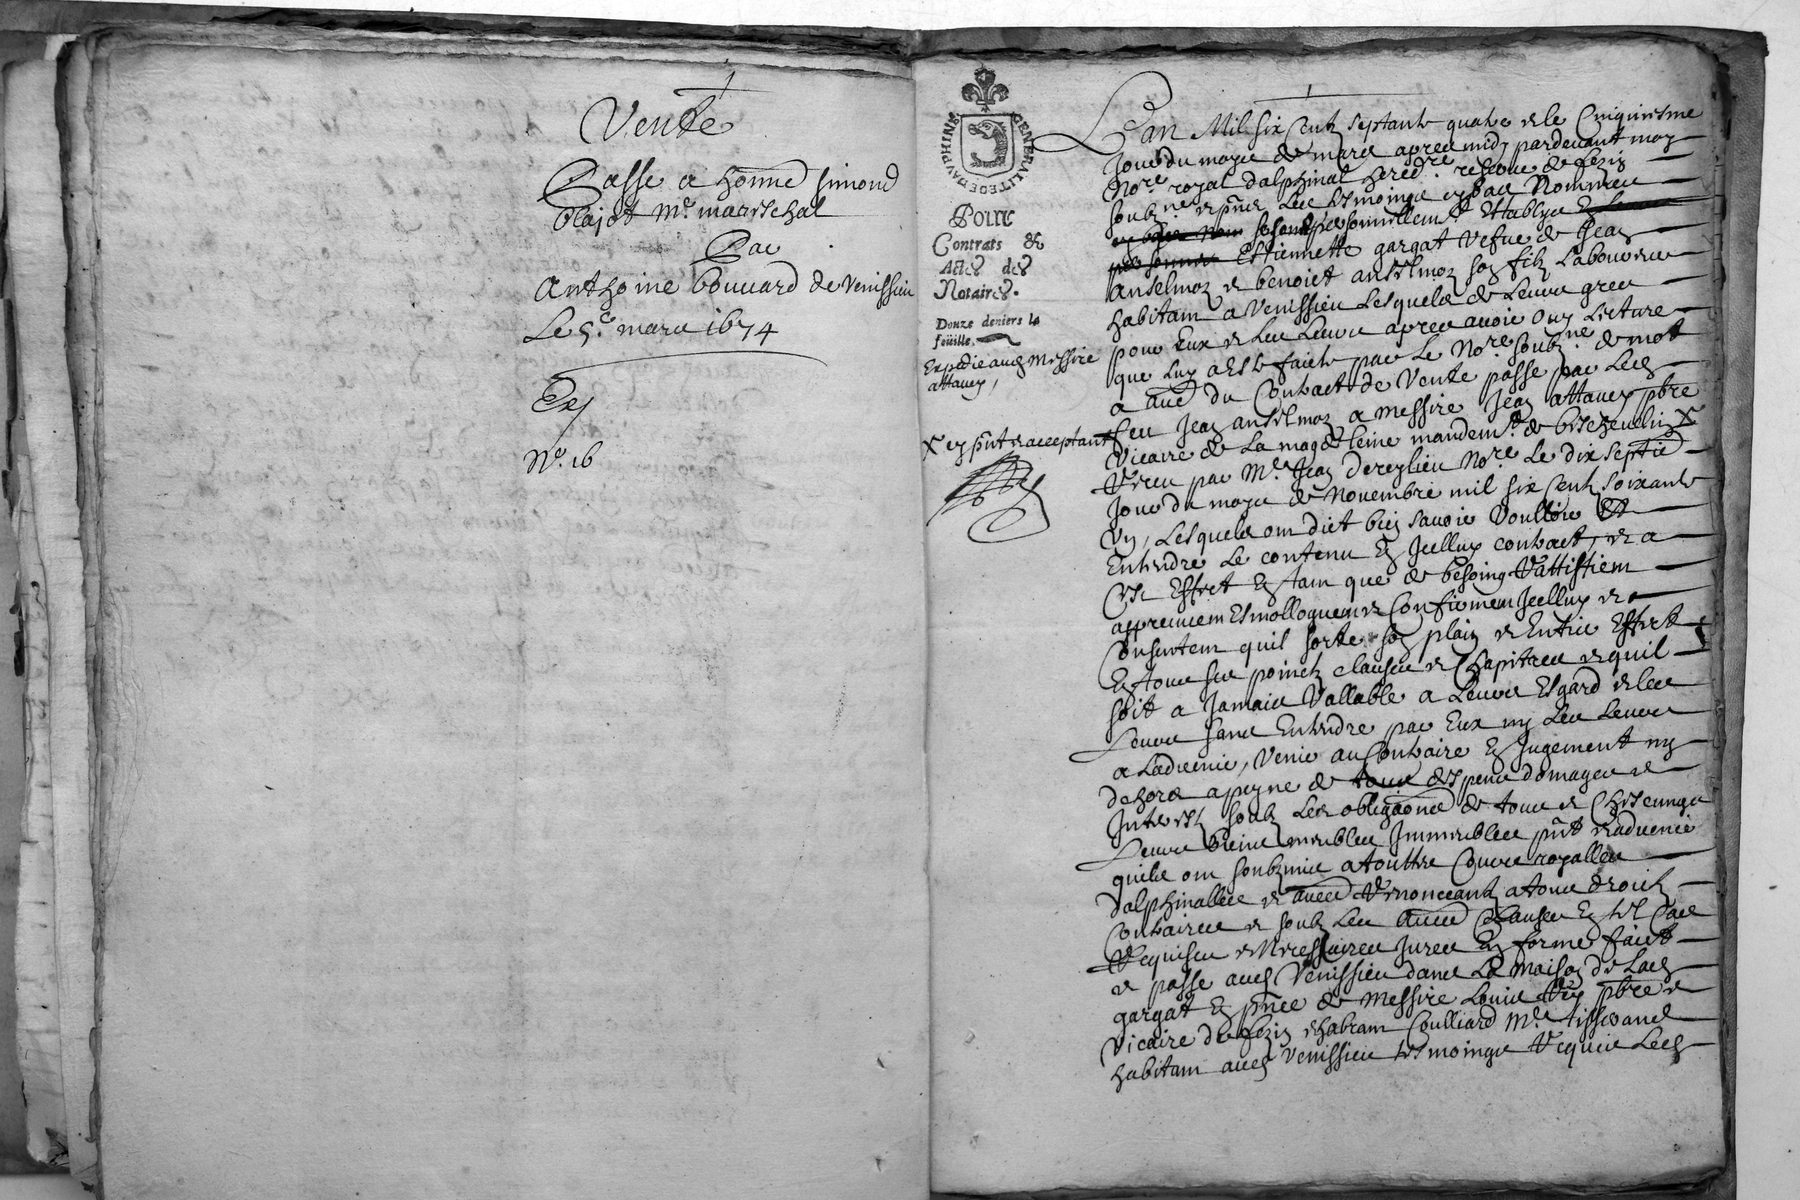 Vente
Passe a honne simond
blajot Me mareschal
Par
Anthoine Bouuard de Venissieu
Le 5e mars 1674
Ex
No 16
GENERALITE DE DAVPHINE
Pour
Contrats &
Actes des
Notaires.
Douze deniers la
feüille.
Expedie aud Messire
attauex,
X en pnt et acceptant
L'an Mil six Cents septante quatre et le Cinquiesme
Jour du moys de mars apres midy pardeuant moy
Nore royal dalphinal hered.re reserue de fezin
soubz.ne et pns les tesmoings
sestant personnellemt Estably
Estiennette gargat vefue de Jean
Anselmoz et benoict anselmoz son filz Laboureur
habitans a Venissieu Lesquels de Leurs gres
pour Eux et Les Leurs apres auoir ouy Lecture
que Luy a Este faicte par Le Nore soubz.ne de mot
a aud du Contract de Vente passe par Led
feu Jean anselmoz a Messire Jean attauex pbre
Vicaire de La magdeleine mandemt de bechevelin X
Receu par Me Jean Dereylieu Nore Le dix septie
Jour du moys de Nouembre mil six Cents soixante
Vn, Lesquels ont dict bien sauoir Voulloir Et
Entendre Le contenu En Jcelluy contract, et a
Cest Effect En tant que de besoing Rattiffient
appreuuent Esmolloguent et Confirment Jcelluy et
Consentent quil sorte son plain et Entier Effect
En tous ses poincts clauses et Chapitres et quil
soit a Jamais Vallable a Leurs Esgard et les
Leurs sans Entendre par Eux ny Les Leurs
a Laduenir, Venir au Contraire En Jugement ny
dehors a peyne de tous despens domages et
Jnterests soubz Les obliga͠ons de tous et Chescungs
Leurs biens meubles Jmmeubles pnt et aduenir
quils ont soubzmis a touttes Cours royalles
dalphinalles et aues Renonceant a tous droits
Contraires et soubz Les aues Clauses En tel Cas
Requises et Necessaires Jures En forme faict
et passe aud Venissieu dans La maison de Lad
gargat En pnce de Messire Louis Rey pbre et
Vicaire de fezin et habram Coulliard Me tisserand
habitans aud Venissieu tesmoings Requis Led